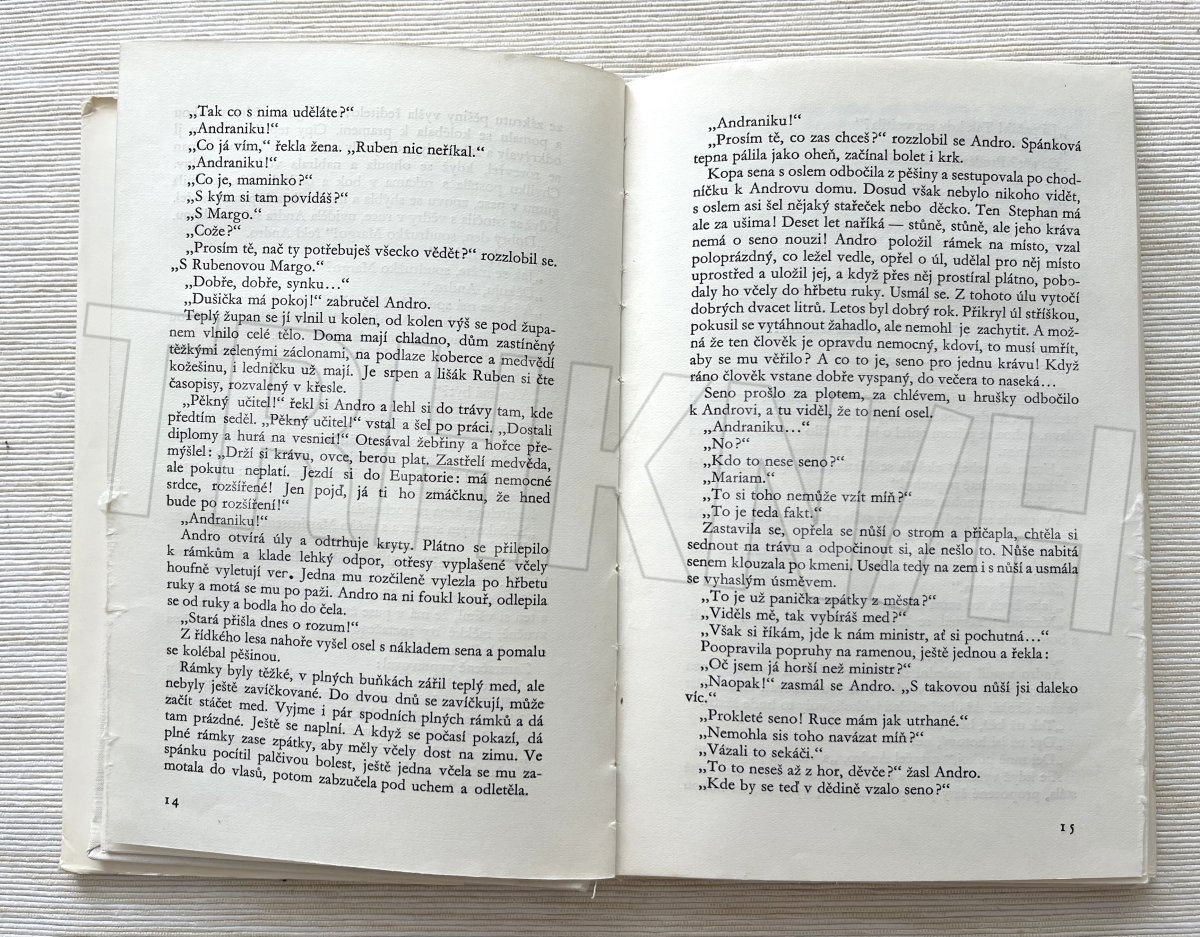 „Tak co s nima uděláte?“
„Andraniku!“
„Co já vím,“ řekla žena. „Ruben nic neříkal.“
„Andraniku!“
„Co je, maminko?“
„S kým si tam povídáš?“
„S Margo.“
„Cože?“
„Prosím tě, nač ty potřebuješ všecko vědět?“ rozzlobil se.
„S Rubenovou Margo.“
„Dobře, dobře, synku...“
„Dušička má pokoj!“ zabručel Andro.
Teplý župan se jí vlnil u kolen, od kolen výš se pod župa-
nem vlnilo celé tělo. Doma mají chladno, dům zastíněný
těžkými zelenými záclonami, na podlaze koberce a medvědí
kožešinu, i ledničku už mají. Je srpen a lišák Ruben si čte
časopisy, rozvalený v křesle.
„Pěkný učitel!“ řekl si Andro a lehl si do trávy tam, kde
předtím seděl. „Pěkný učitel!“ vstal a šel po práci. „Dostali
diplomy a hurá na vesnici!“ Otesával žebřiny a hořce pře-
mýšlel: „Drží si krávu, ovce, berou plat. Zastřelí medvěda,
ale pokutu neplatí. Jezdí si do Eupatorie: má nemocné
srdce, rozšířené! Jen pojď, já ti ho zmáčknu, že hned
bude po rozšíření!“
„Andraniku!“
Andro otvírá úly a odtrhuje kryty. Plátno se přilepilo
k rámkům a klade lehký odpor, otřesy vyplašené včely
houfně vyletují ver. Jedna mu rozčileně vylezla po hřbetu
ruky a motá se mu po paži. Andro na ni foukl kouř, odlepila
se od ruky a bodla ho do čela.
„Stará přišla dnes o rozum!“
Z řídkého lesa nahoře vyšel osel s nákladem sena a pomalu
se kolébal pěšinou.
Rámky byly těžké, v plných buňkách zářil teplý med, ale
nebyly ještě zavíčkované. Do dvou dnů se zavíčkují, může
začít stáčet med. Vyjme i pár spodních plných rámků a dá
tam prázdné. Ještě se naplní. A když se počasí pokazí, dá
plné rámky zase zpátky, aby měly včely dost na zimu. Ve
spánku pocítil palčivou bolest, ještě jedna včela se mu za-
motala do vlasů, potom zabzučela pod uchem a odletěla.
14
„Andraniku!“
„Prosím tě, co zas chceš?“ rozzlobil se Andro. Spánková
tepna pálila jako oheň, začínal bolet i krk.
Kopa sena s oslem odbočila z pěšiny a sestupovala po chod-
níčku k Androvu domu. Dosud však nebylo nikoho vidět,
s oslem asi šel nějaký stařeček nebo děcko. Ten Stephan má
ale za ušima! Deset let naříká — stůně, stůně, ale jeho kráva
nemá o seno nouzi! Andro položil rámek na místo, vzal
poloprázdný, co ležel vedle, opřel o úl, udělal pro něj místo
uprostřed a uložil jej, a když přes něj prostíral plátno, pobo-
daly ho včely do hřbetu ruky. Usmál se. Z tohoto úlu vytočí
dobrých dvacet litrů. Letos byl dobrý rok. Přikryl úl stříškou,
pokusil se vytáhnout žahadlo, ale nemohl je zachytit. A mož-
ná že ten člověk je opravdu nemocný, kdoví, to musí umřít,
aby se mu věřilo? A co to je, seno pro jednu krávu! Když
ráno člověk vstane dobře vyspaný, do večera to naseká...
Seno prošlo za plotem, za chlévem, u hrušky odbočilo
k Androvi, a tu viděl, že to není osel.
„Andraniku...“
„No?“
„Kdo to nese seno?“
„Mariam.“
„To si toho nemůže vzít míň?“
„To je teda fakt.“
Zastavila se, opřela se nůší o strom a přičapla, chtěla si
sednout na trávu a odpočinout si, ale nešlo to. Nůše nabitá
senem klouzala po kmeni. Usedla tedy na zem i s nůší a usmála
se vyhaslým úsměvem.
„To je už panička zpátky z města?“
„Viděls mě, tak vybíráš med?“
„Však si říkám, jde k nám ministr, ať si pochutná...“
Poopravila popruhy na ramenou, ještě jednou a řekla:
„Oč jsem já horší než ministr?“
„Naopak!“ zasmál se Andro. „S takovou nůší jsi daleko
víc.“
„Prokleté seno! Ruce mám jak utrhané.“
„Nemohla sis toho navázat míň?“
„Vázali to sekáči.“
„To to neseš až z hor, děvče?“ žasl Andro.
„Kde by se teď v dědině vzalo seno?“
15